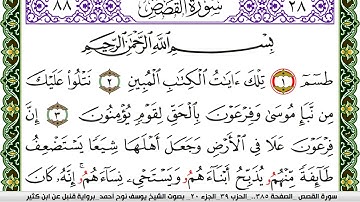 ٨٨ سُورَةُ القَصَصِ ٢٨
بِسْمِ اللَّهِ الرَّحْمَٰنِ الرَّحِيمِ
طسٓمٓ ١ تِلْكَ ءَايَٰتُ الْكِتَٰبِ الْمُبِينِ ٢ نَتْلُواْ عَلَيْكَ
مِن نَّبَإِ مُوسَىٰ وَفِرْعَوْنَ بِالْحَقِّ لِقَوْمٍ يُؤْمِنُونَ ٣ إِنَّ
فِرْعَوْنَ عَلَا فِي الْأَرْضِ وَجَعَلَ أَهْلَهَا شِيَعًا يَسْتَضْعِفُ
طَآئِفَةً مِّنْهُمُۥ يُذَبِّحُ أَبْنَآءَهُمُۥ وَيَسْتَحْىِۦ نِسَآءَهُمُۥٓ إِنَّهُۥ كَانَ
سورة القصص الصفحة ٣٨٥... الحزب ٣٩ الجزء ٢٠ بصوت الشيخ يوسف نوح أحمد. برواية قنبل عن ابن كثير